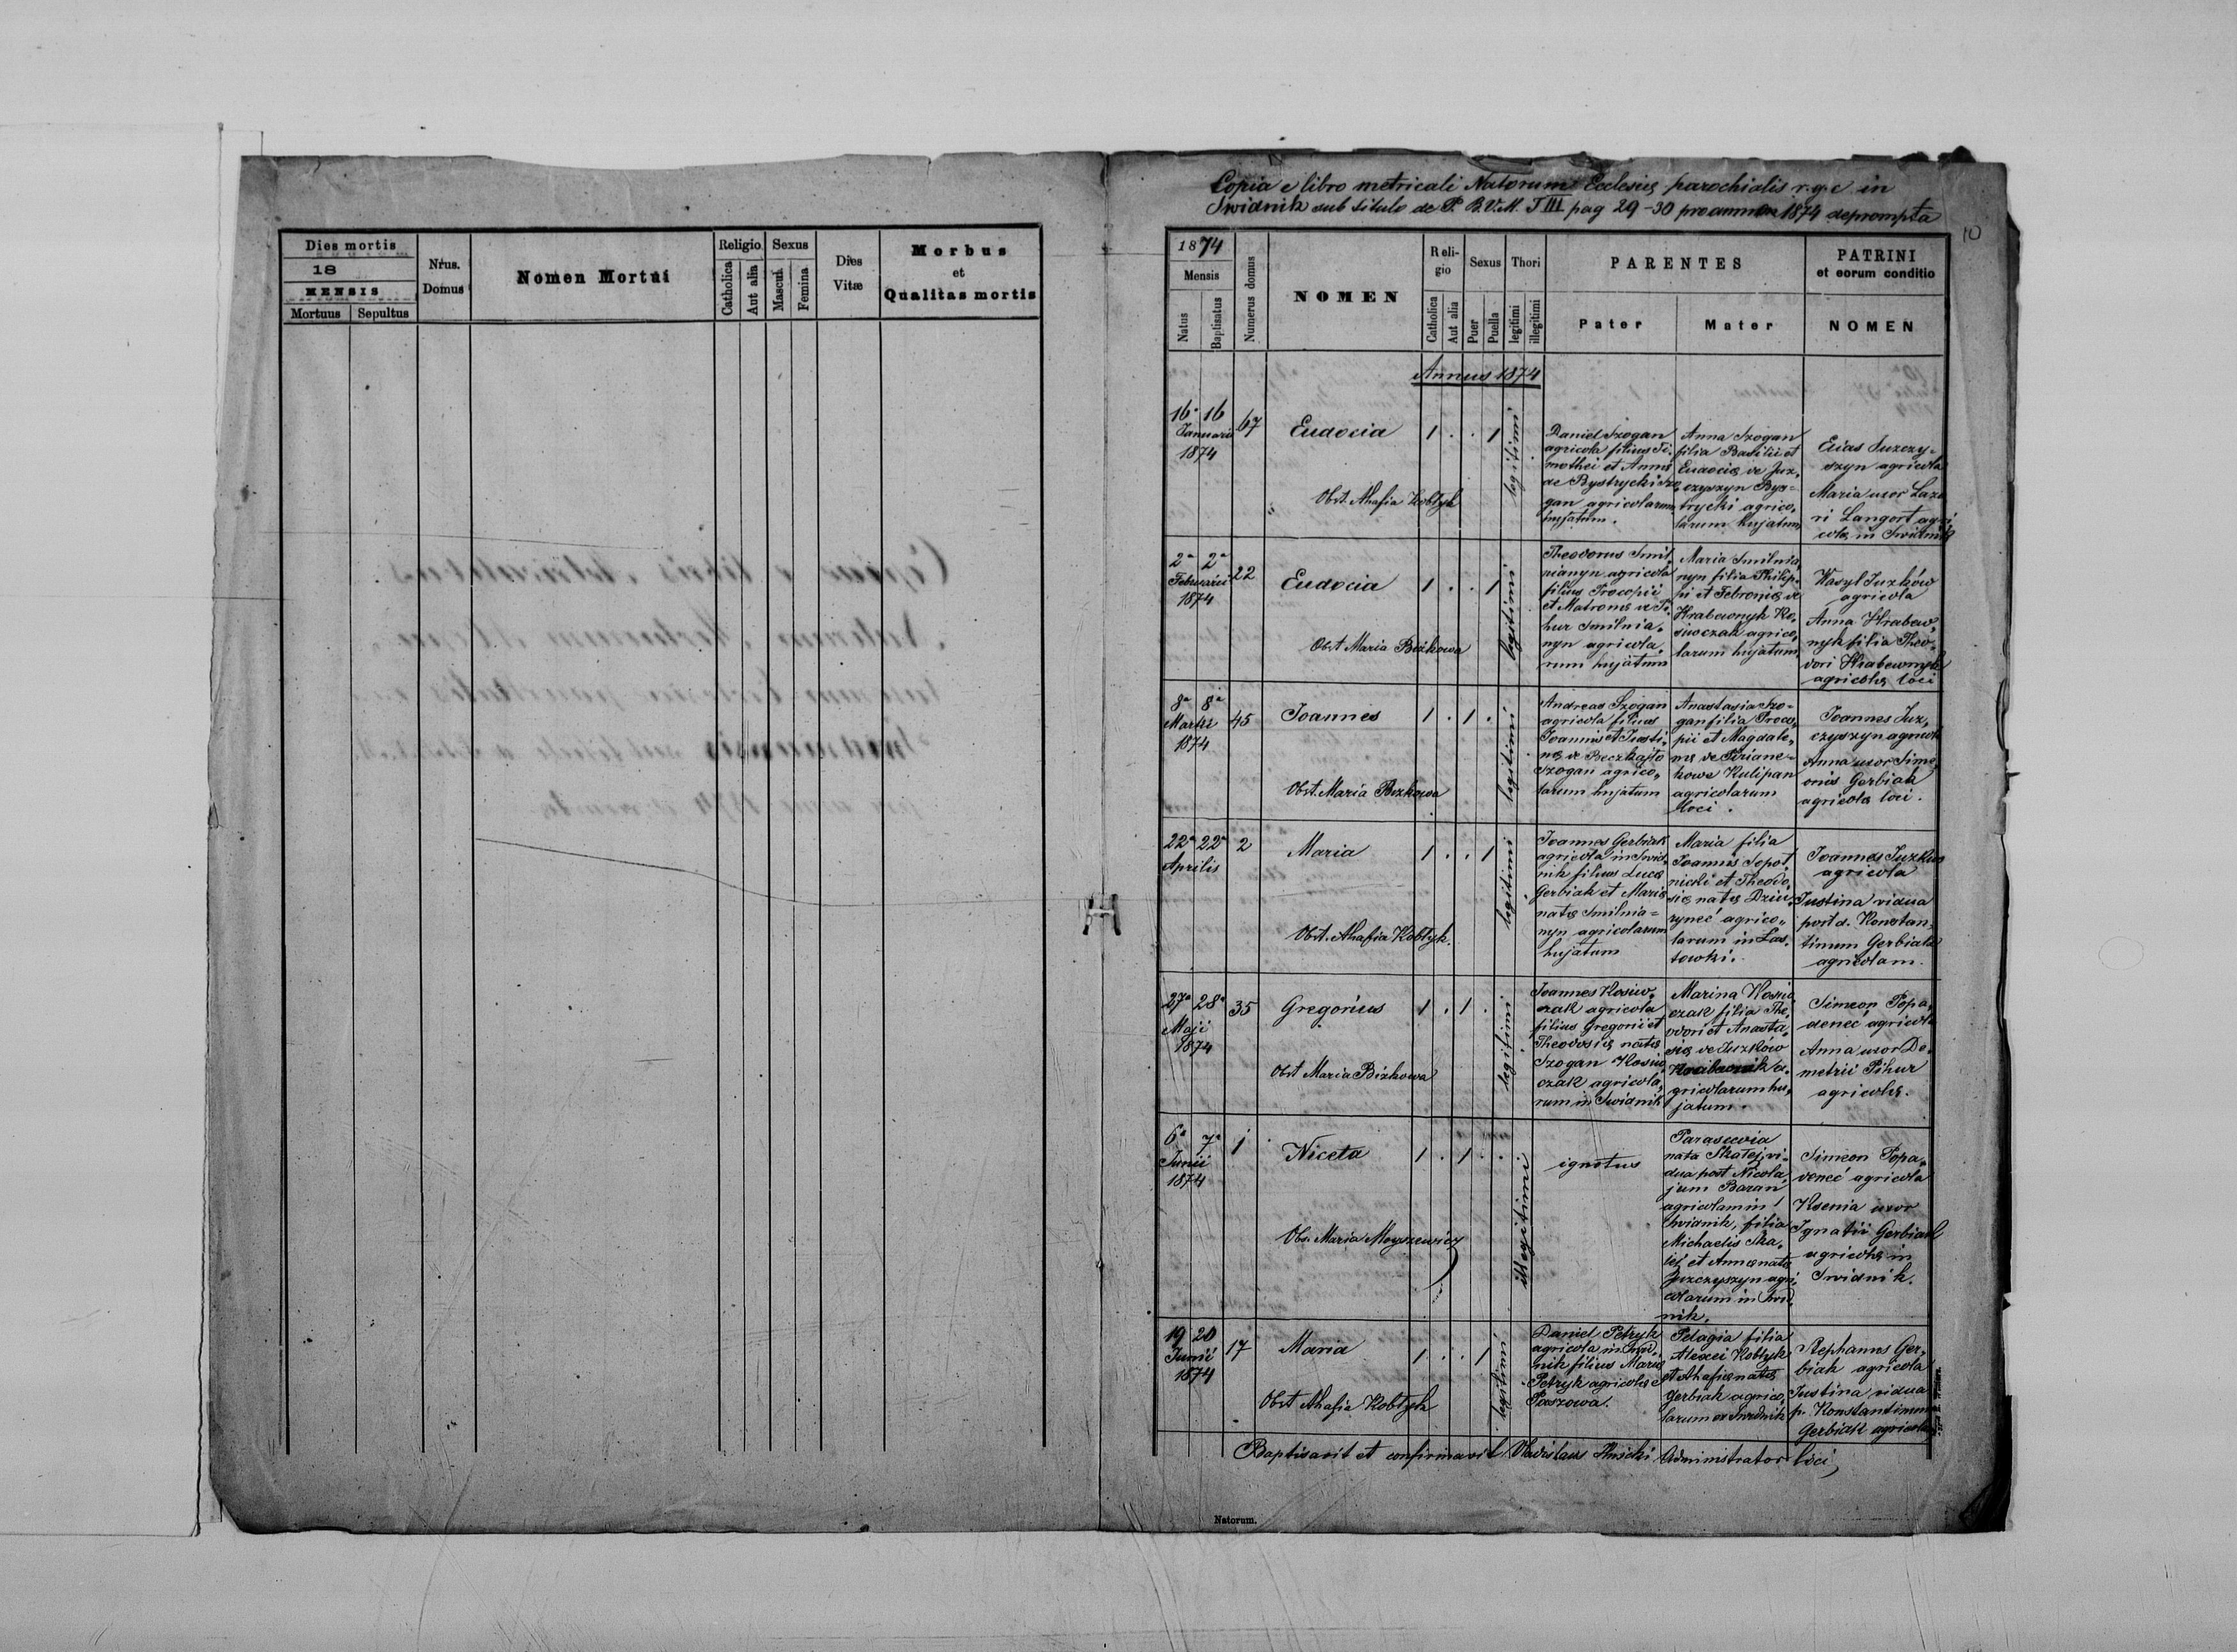 Dies mortis
18
MENSIS
Mortuus Sepultus
Nrus.
Domus
Nomen Mortui
Religio
Catholica
Aut alia
Sexus
Mascul.
Femina
Dies
Vitæ
Morbus
et
Qualitas mortis
Copia e libro metricali Natorum Ecclesiæ parochialis r.g.c in
Swidnik sub titulo de P. B.V.M. T III pag 29-30 pro anno 1874 deprompta
10
1874
Mensis
Natus
Baptisatus
Numerus domus
NOMEN
Reli-
gio
Catholica
Aut alia
Sexus
Puer
Puella
Thori
legitimi
illegitimi
PARENTES
Pater
Mater
PATRINI
et eorum conditio
NOMEN
Annus 1874
16 16
Januarii
1874
67
Eudocia
1 . . 1
legitimi
Obst. Ahafia Kobtyk
Daniel Szogan
agricola filius Ti-
mothei et Annæ
de Bystrycki Szo-
gan agricolarum
hujatum.
Anna Szogan
filia Basilii et
Eudociæ de Juz-
czyszyn Bys-
trycki agrico-
larum hujatum
Elias Juzczy-
szyn agricola
Maria uxor Laza
ri Langort agri
colæ in Swidnik
2a 2a
Februarii
1874
22
Eudocia
1 . . 1
legitimi
Obst Maria Bizkowa
Theodorus Smil-
nianyn agricola
filius Procopii
et Matronæ de Pi-
hur Smilnia-
nyn agricola-
rum hujatum
Maria Smilnia-
nyn filia Philip-
pi et Febroniæ de
Hrabownyk Ko-
siwczak agrico-
larum hujatum
Wasyl Juzków
agricola
Anna Hrabow-
nyk filia Theo-
dori Hrabownyk
agricolæ loci
8a 8a
Martii
1874
45
Joannes
1 . 1 .
legitimi
Obst. Maria Bizkowa
Andreas Szogan
agricola filius
Joannis et Justi-
næ de Beczkajto
Szogan agrico-
larum hujatum
Anastasia Szo-
gan filia Proco-
pii et Magdale-
næ de
kowe Kulipan
agricolarum
loci.
Joannes Juz-
czyszyn agricola
Anna uxor Sime-
onis Gerbiak
agricolæ loci.
22a 22a
Aprilis
2
Maria
1 . . 1
legitimi
Obst. Ahafia Kobtyk.
Joannes Gerbiak
agricola in Swid-
nik filius Lucæ
Gerbiak et Mariæ
natæ Smilnia-
nyn agricolarum
hujatum
Maria filia
Joannis Sopot-
nicki et Theodo-
siæ natæ
agrico-
larum in Las-
towki.
Joannes Juzków
agricola
Justina vidua
post d. Konstan-
tinum Gerbiak
agricolam.
27a 28a
Maji
1874
35
Gregorius
1 . 1 .
legitimi
Obst Maria Bizkowa
Joannes Kosiw-
czak agricola
filius Gregorii et
Theodosiæ natæ
Szogan Kosiw
czak agricola-
rum in Swidnik
Marina Kosiw
czak filia The-
odori et Anasta-
siæ de Juzków
Hrabownik a-
gricolarum hu-
jatum.
Simeon Popa-
deneć agricola
Anna uxor De-
metrii Pihur
agricolæ.
6a 7a
Junii
1874
1
Niceta
1 . 1 .
illegitimi
Obs. Maria Moyszewicz
ignotus
Parascevia
nata Skałej vi-
dua post Nicola-
jum Baran
agricolam in
Swidnik, filia
Michaelis Ska-
łej et Annæ natæ
Juzczyszyn agri-
colarum in Swid-
nik.
Simeon Popa-
deneć agricola
Ksenia uxor
Ignatii Gerbiak
agricolæ in
Swidnik.
19 20
Junii
1874
17
Maria
1 . . 1
legitimi
Obst Ahafia Kobtyk
Daniel Petryk
agricola in Swid-
nik filius Mariæ
Petryk agricolæ e
Paszowa.
Pelagia filia
Alexei Kobtyk
et Ahafiæ natæ
Gerbiak agrico-
larum ex Swidnik
Stephanus Ger-
biak agricola
Justina vidua
p. Konstantinum
Gerbiak agricolam
Baptisavit et confirmavit Vladislaus Administrator loci
Natorum.